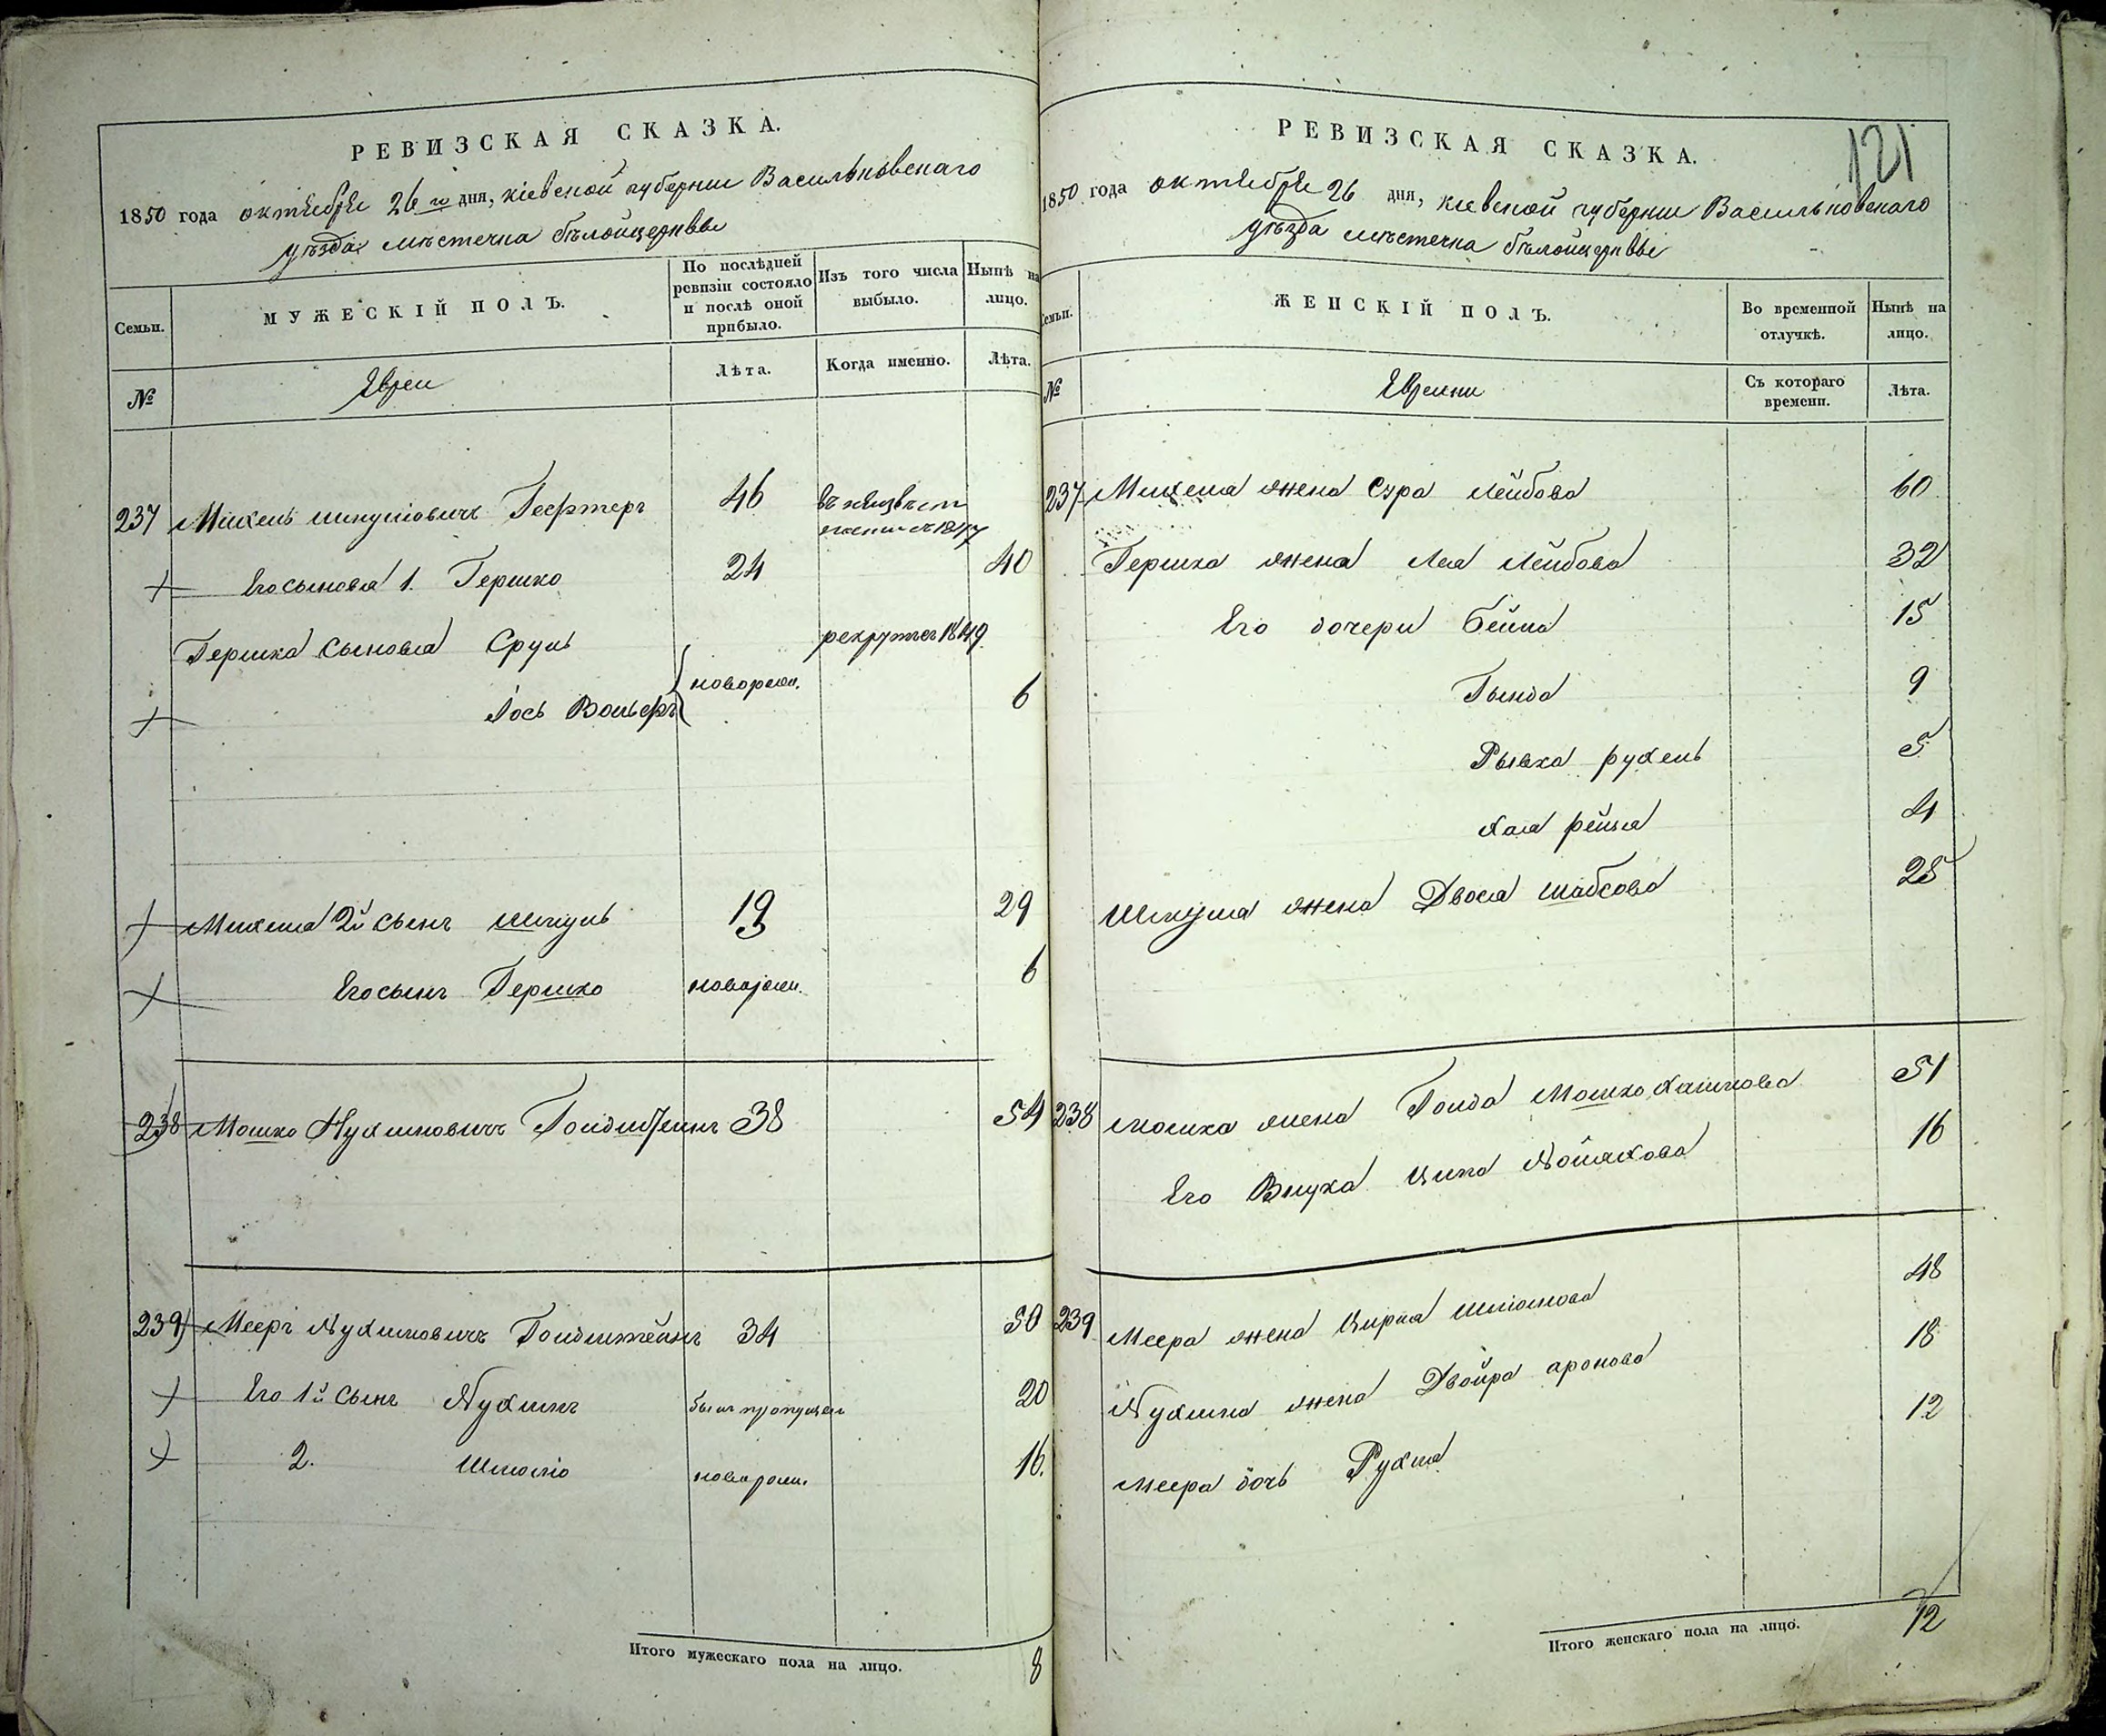 РЕВИЗСКАЯ СКАЗКА.
1850 года октября 26 го дня, кіевской губерніи Васильковскаго
уѣзда мѣстечка бѣлойцеркви
Семьи.
МУЖЕСКІЙ ПОЛЪ.
По послѣдней ревизіи состояло и послѣ оной прибыло.
Изъ того числа выбыло.
Нынѣ на лицо.
№
Евреи
Лѣта.
Когда именно.
Лѣта.
237 Михель Шмулiовичъ 46 1847
Его сыновья 1. Гершко 24 40
Гершка сыновья Сруль рекрутъ 1849
Іось Вольфъ новорожд. 6
Михеля 2й сынъ Шмуль 19 29
Его сынъ Гершко новорожд. 6
238 Мошко Нухимовичъ Голдштеинъ 38 54
239 Мееръ Нухимовичъ Голдштейнъ 34 50
Его 1й сынъ Нухимъ былъ пропущен 20
2. Шлiомо новорожд. 16.
Итого мужескаго пола на лицо. 8
РЕВИЗСКАЯ СКАЗКА.
121
1850 года октября 26 дня, кіевской губерніи Васильковскаго
уѣзда мѣстечка бѣлойцеркви
Семьи.
ЖЕНСКІЙ ПОЛЪ.
Во временной отлучкѣ.
Нынѣ на лицо.
№
Еврейки
Съ котораго времени.
Лѣта.
237 Михеля жена Сура Лейбова 60
Гершка жена Лея Лейбова 32
Его дочери Бейла 15
Гында 9
Рывка рухель 5
Хая рейзя 4
Шмуля жена Двося Шабсова 25
238 Мошка жена Голда Мошко Хаимова 51
Его Внука Ципа 16
239 Меера жена Цирля Шлiомова 48
Нухима жена Двойра аронова 18
Меера дочь Рухля 12
Итого женскаго пола на лицо. 12